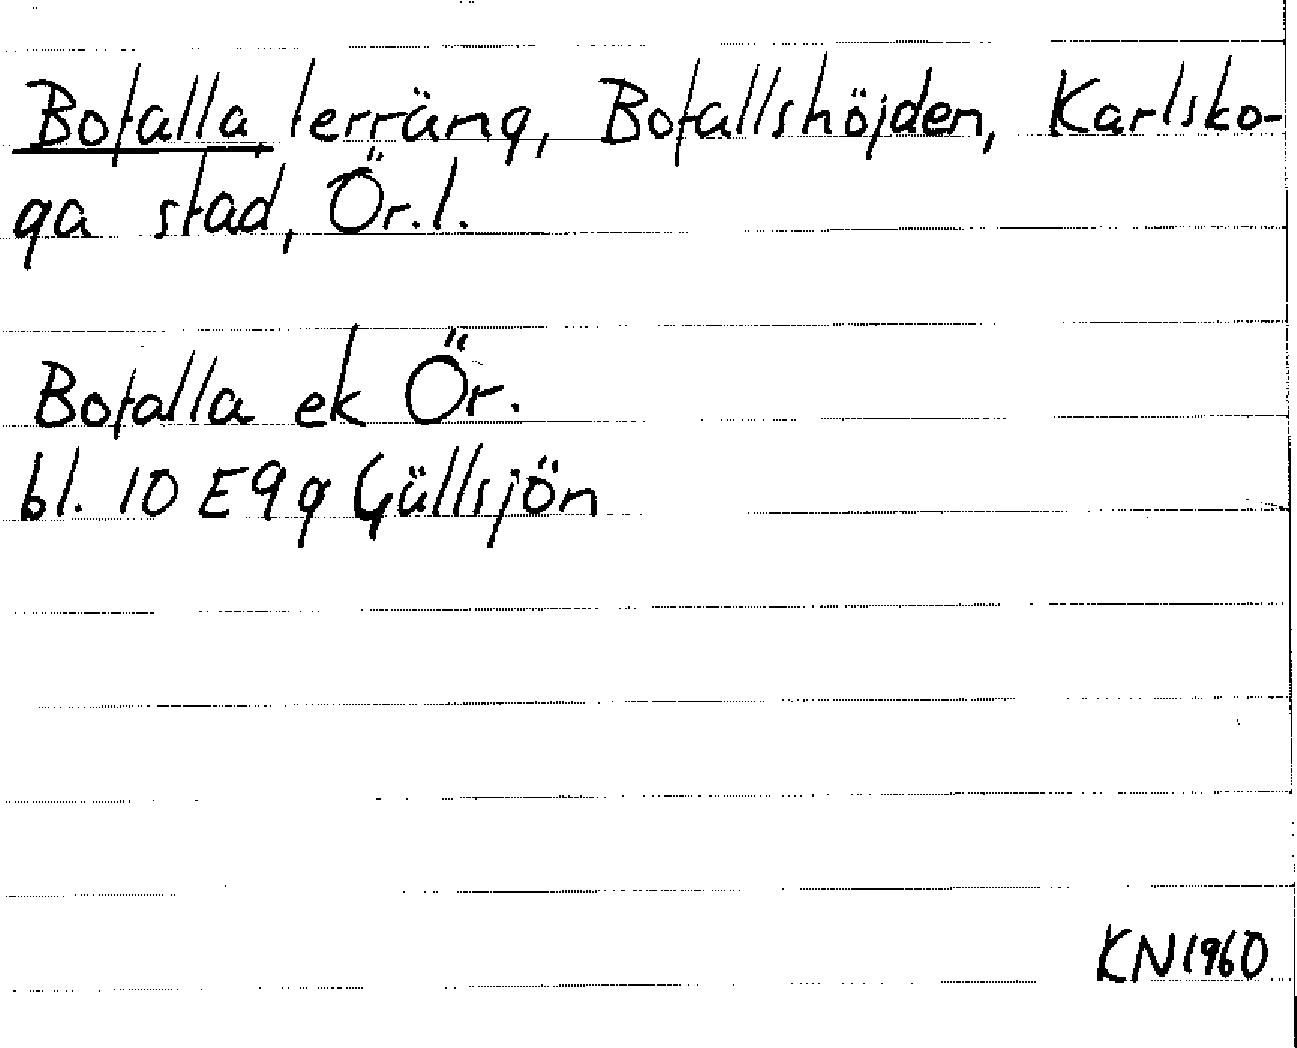 Bofalla terräng, Bofallshöjden, Karlsko-
ga stad, Ör. l.
Bofalla ek Ör.
bl. 10 E9g Gällsjön
KN 1960